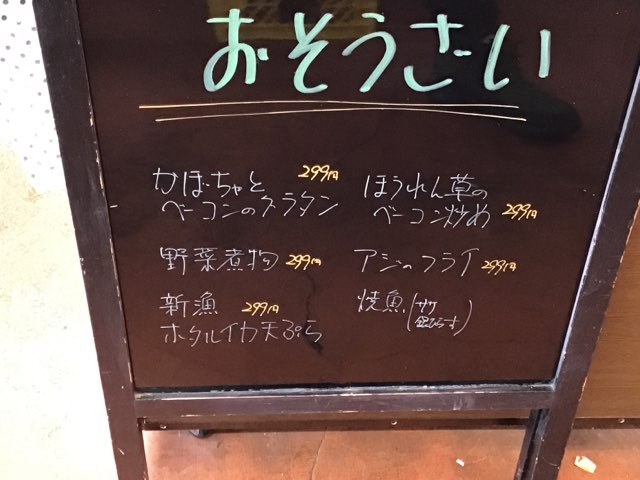 おそうざい
かぼちゃと 299円
ベーコンのグラタン
ほうれん草の
ベーコン炒め 299円
野菜煮物 299円
アジのフライ 299円
新漁 299円
ホタルイカ天ぷら
焼魚